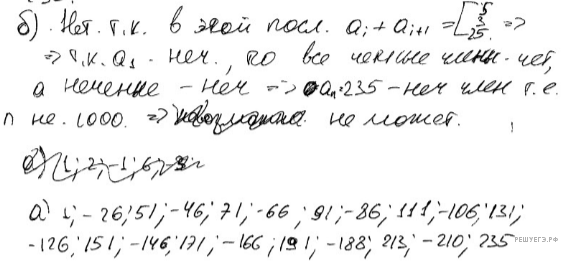 б) Нет. т.к. в этой посл. ai + ai+1 = [5 3 25. =>
=> т.к. a1 - неч., то все четные члены - чет,
а нечетные - неч => an = 235 - неч член т.е.
n не. 1000. => не может.
а) 1; -26; 51; -46; 71; -66; 91; -86; 111; -106; 131;
-126; 151; -146; 171; -166; 191; -188; 213; -210; 235
РЕШУЕГЭ.РФ